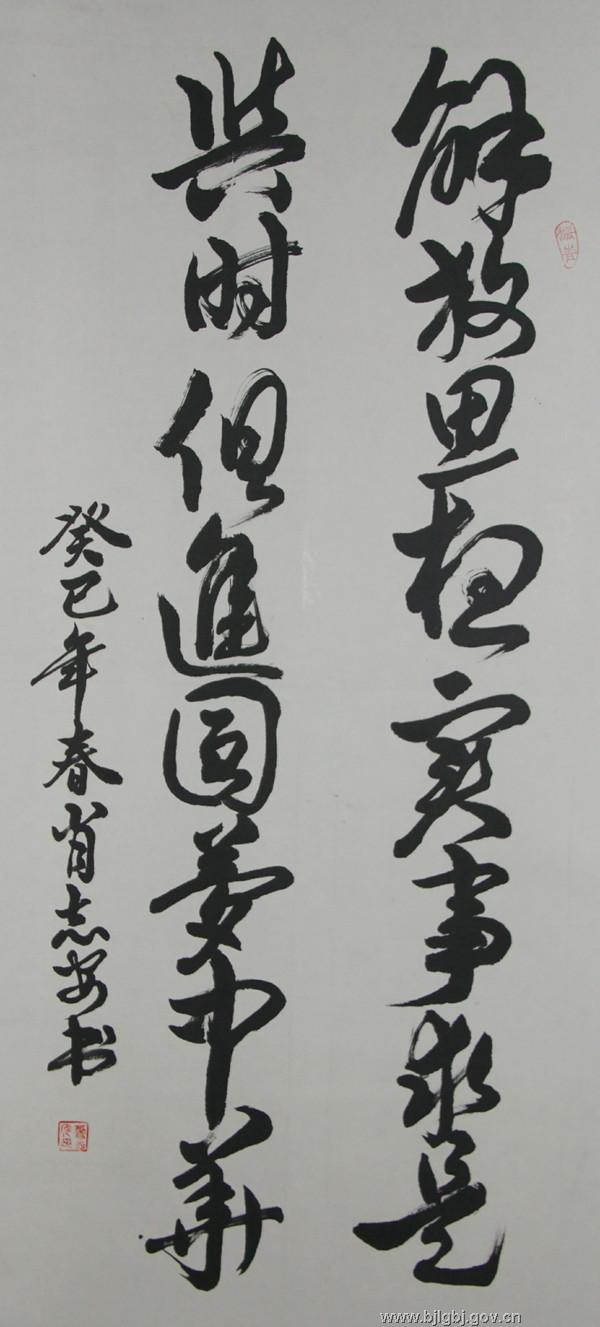 解放思想實事求是
與时但進圓夢中華
癸巳年春肖志安书
www.bjlgbj.gov.cn